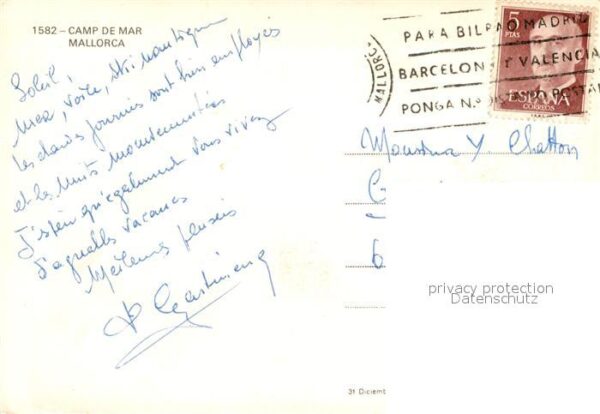 1582 – CAMP DE MAR
MALLORCA
Soleil,
Mer, voile, ski nautique
les journées sont bien employées
et les nuits mouvementées
J'espère qu'également vous vivez
d'agréables vacances
Meilleures pensées
MALLORC
PARA BILBAO MADRID
BARCELON VALENCIA
PONGA N.º POSTAL
5
PTAS
ESPAÑA
CORREOS
Monsieur Y. Chatton
privacy protection
Datenschutz
31 Diciemb